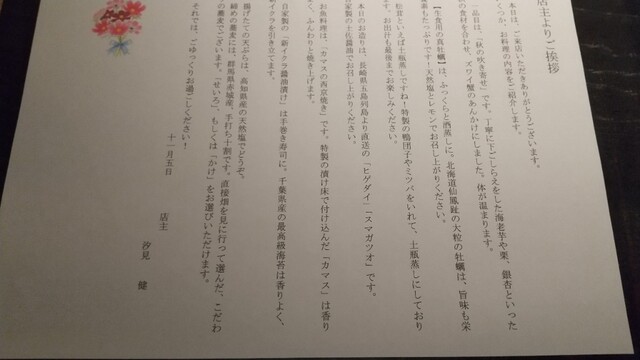 店主よりご挨拶
本日は、ご来店いただきありがとうございます。
つくか、お料理の内容をご紹介します。
一品目は、「秋の吹き寄せ」です。丁寧に下ごしらえをした海老芋や栗、銀杏といった
の食材を合わせ、ズワイ蟹のあんかけにしました。体が温まります。
【生食用の真牡蠣】は、ふっくらと酒蒸しに。北海道仙鳳趾の大粒の牡蠣は、旨味も栄
養素もたっぷりです！天然塩とレモンでお召し上がりください。
松茸といえば土瓶蒸しですね！特製の鴨団子やミツバをいれて、土瓶蒸しにしており
ます。お出汁も最後までお楽しみください。
本日のお造りは、長崎県五島列島より直送の「ヒゲダイ」「スマガツオ」です。
家製の土佐醤油でお召し上がりください。
お魚料理は、「カマスの西京焼き」です。特製の漬け床で付け込んだ「カマス」は香り
く、ふんわりと焼き上げます。
自家製の「新イクラ醤油漬け」は手巻き寿司に。千葉県産の最高級海苔は香りよく、
イクラを引き立てます。
揚げたての天ぷらは、高知県産の天然塩でどうぞ。
締めの蕎麦には、群馬県赤城産、手打ち十割です。直接畑を見に行って選んだ、こだわ
の蕎麦でございます。「せいろ」、もしくは「かけ」をお選びいただけます。
それでは、ごゆっくりお過ごしください！
十一月五日
店主 汐見 健